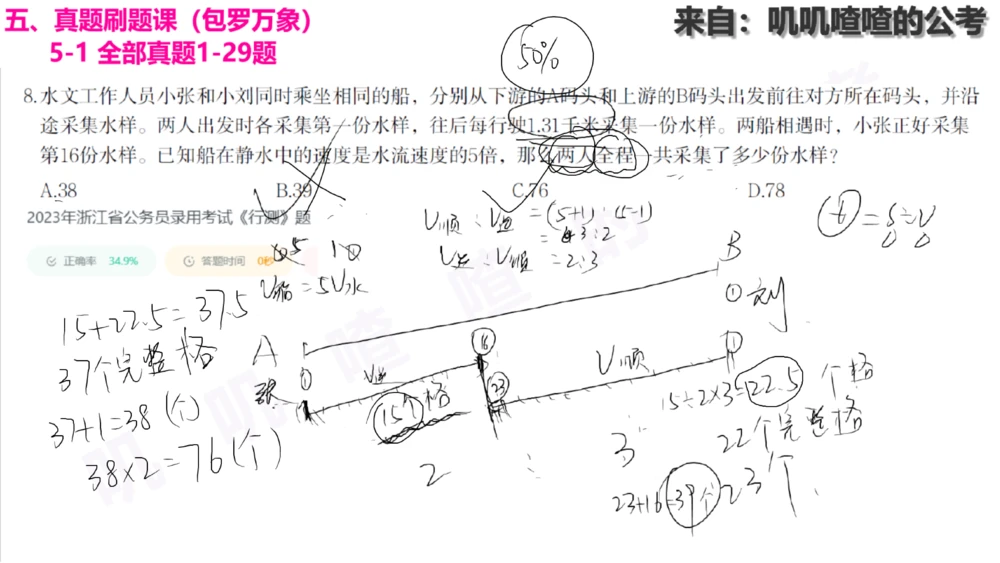 五、真题刷题课（包罗万象）
5-1 全部真题1-29题
来自：叽叽喳喳的公考
50%
8.水文工作人员小张和小刘同时乘坐相同的船，分别从下游的A码头和上游的B码头出发前往对方所在码头，并沿
途采集水样。两人出发时各采集第一份水样，往后每行驶1.31千米采集一份水样。两船相遇时，小张正好采集
第16份水样。已知船在静水中的速度是水流速度的5倍，那么两人全程一共采集了多少份水样？
A.38 B.39 C.76 D.78
2023年浙江省公务员录用考试《行测》题
正确率 34.9% 答题时间 0秒
V顺：V逆=(5+1)：(5-1)
=3:2
V逆：V顺=2:3
t=S÷V
V船=5V水
15+22.5=37.5
37个完整格
37+1=38(个)
38×2=76(个)
A
张
①
V逆
15个格
⑯
㉓
V顺
B
①刘
①
15÷2×3=22.5个格
22个完整格
23个
2 : 3
23+16=39个